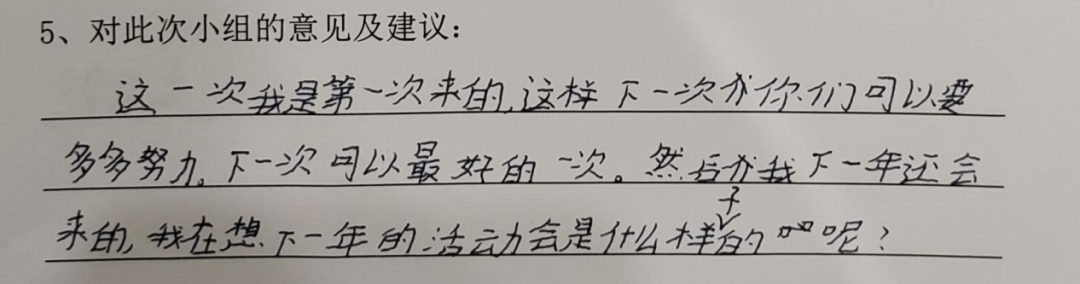 5、对此次小组的意见及建议：
这一次我是第一次来的，这样下一次你们可以要
多多努力。下一次可以最好的一次。然后我下一年还会
来的，我在想下一年的活动会是什么样子的呢？